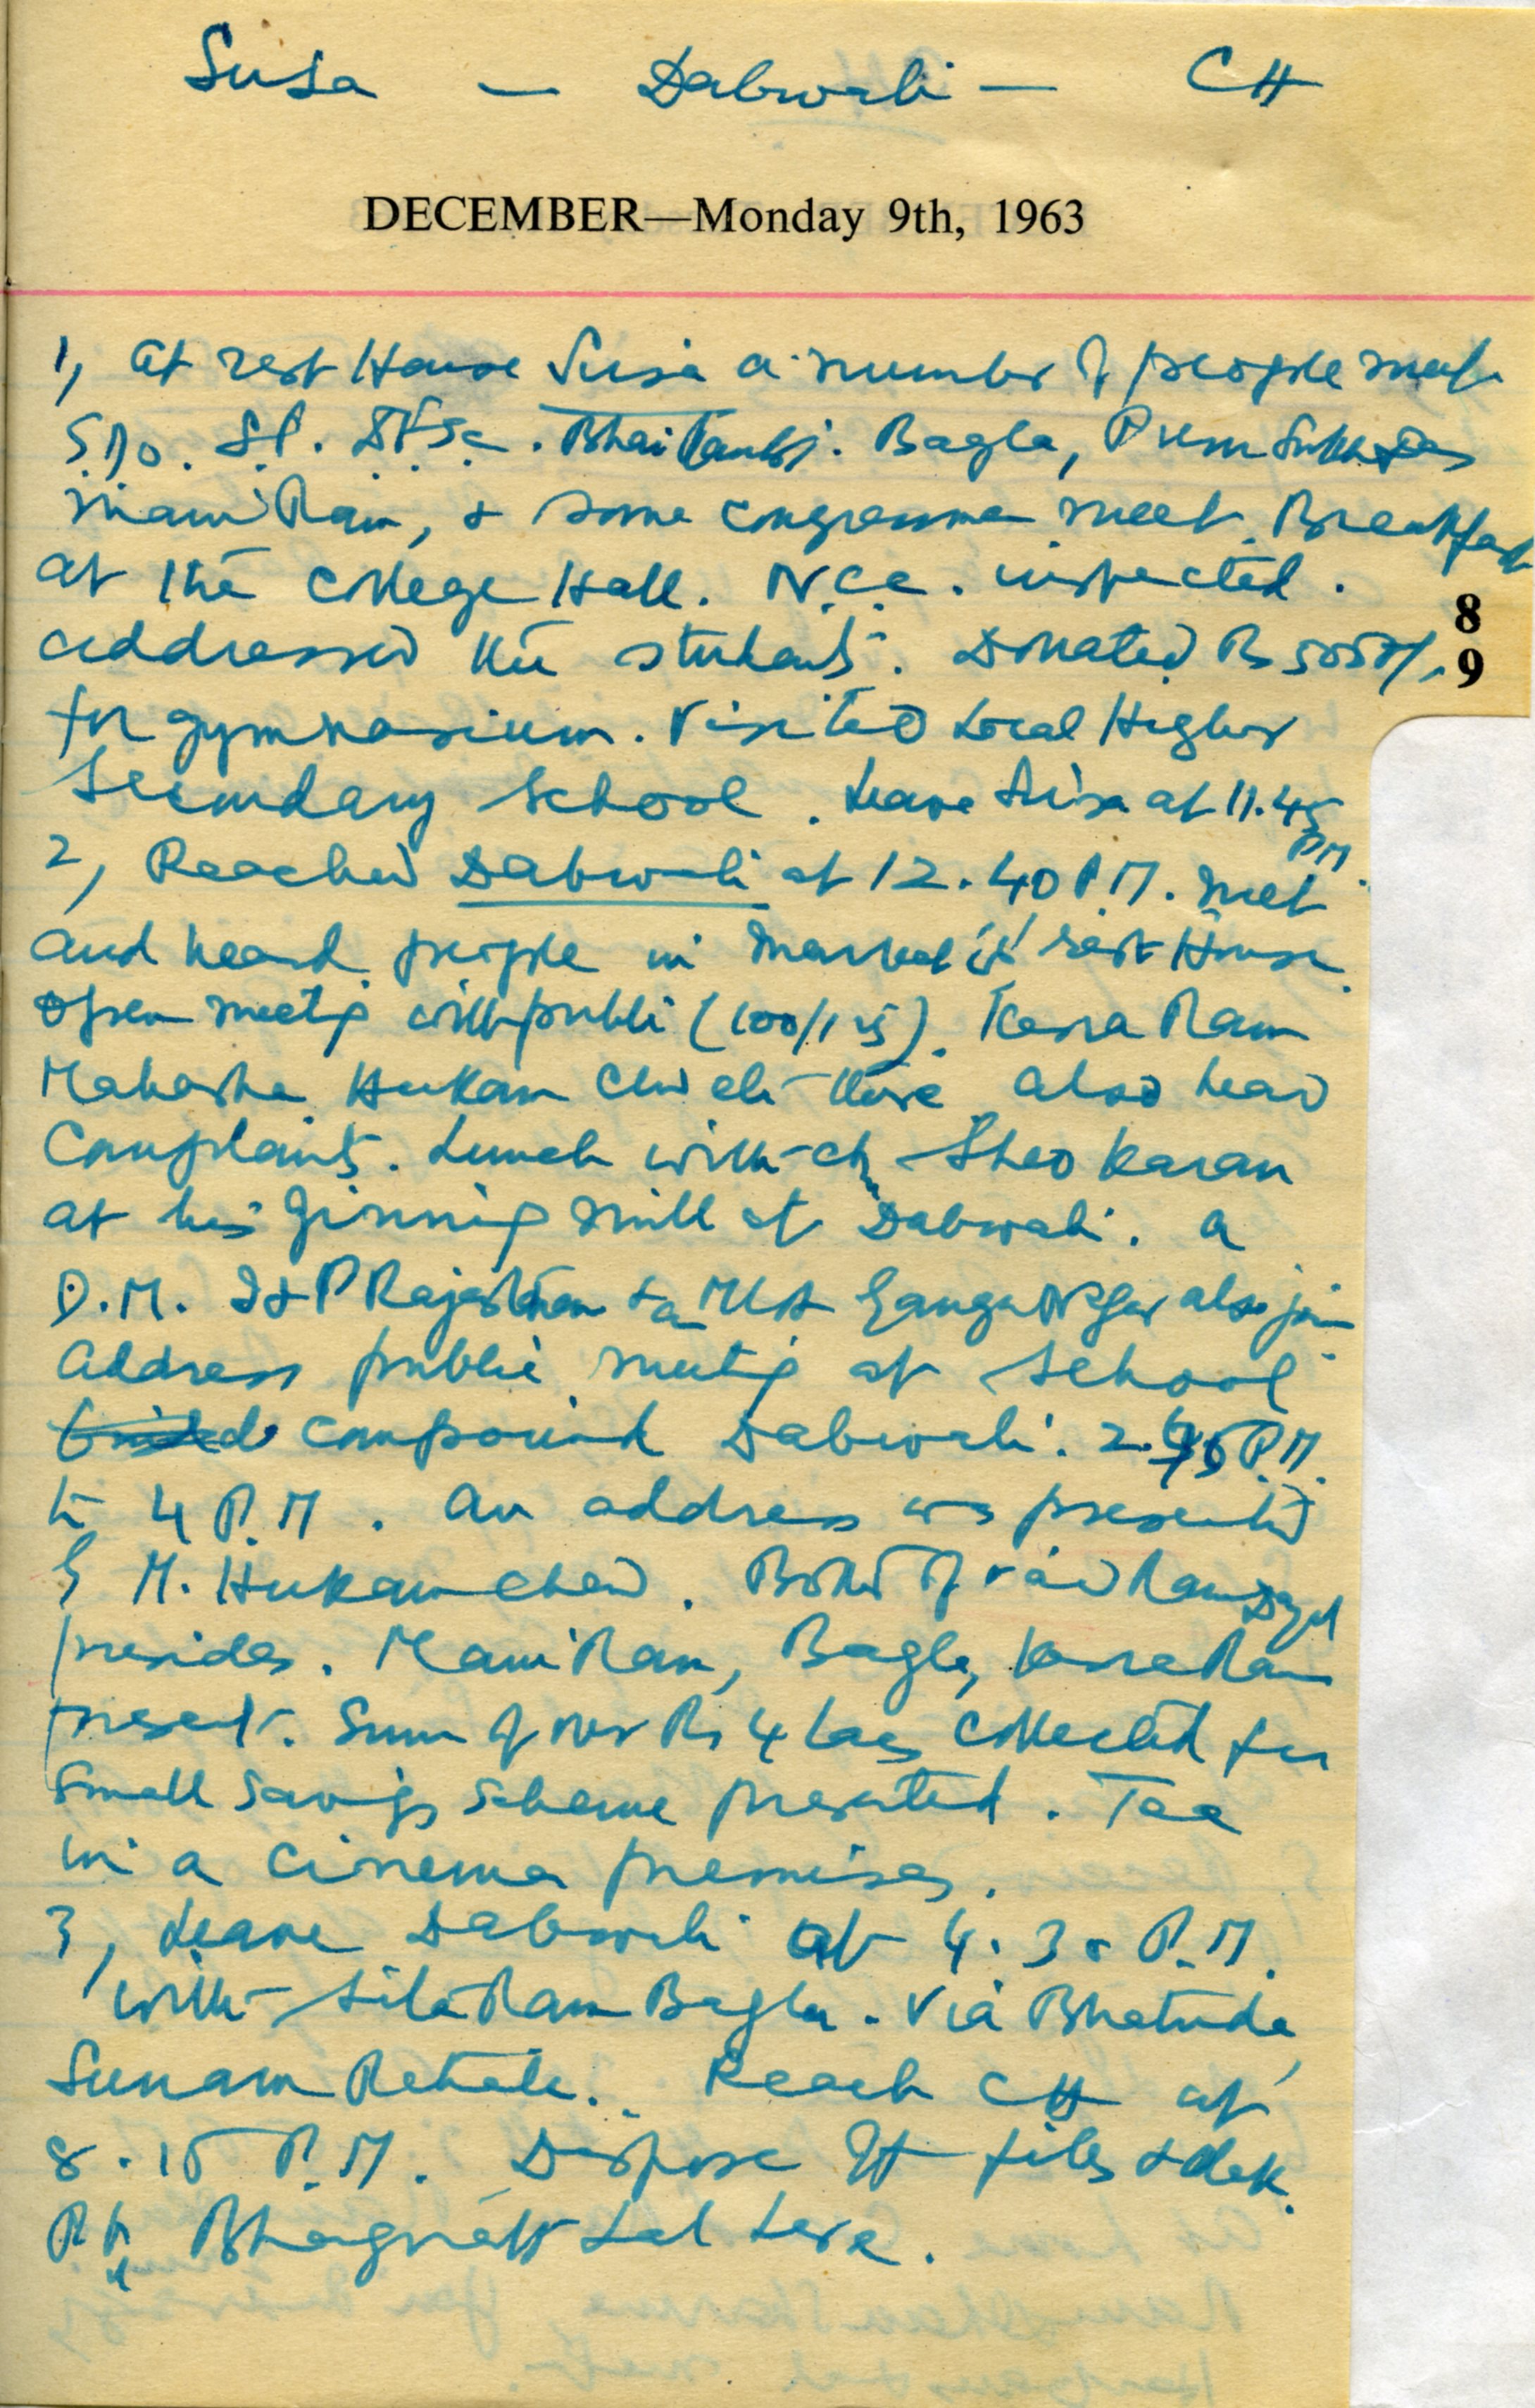 Sirsa — Dabwali — CH
DECEMBER—Monday 9th, 1963
1, At rest House Sirsa a number of people meet
S.D.O. S.P. Bagla, Prem Sukh Das
Mani Ram, & some congressmen meet. Breakfast
at the College Hall. N.C.C. inspected.
8
addressed the students. Donated Rs
9
for gymnasium. Visited Local Higher
Secondary School. Leave Sirsa at 11.45
PM.
2, Reached Dabwali at 12.40 P.M. met
and heard people in rest House.
Open meetig with public Kesra Ram
Mahasha Hukam there also head
Complaints. Lunch with ch Sheo Karan
at his ginning mill at Dabwali. A
D.M. Rajasthan & a MLA Ganga Nagar also join
Address public meetig at School
compound Dabwali. P.M.
to 4 P.M. An address was presented
M. Hukam chand. Ram Dayal
presides. Mani Ram, Bagla, Kesra Ram
present. Sum of over Rs 4 lacs collected for
Small Savigs Scheme presented. Tea
in a cinema premises.
3, Leave Dabwali at 4.30 P.M.
with Sita Ram Bagla. Via Bhatinda,
Sunam Patiala. Reach CH at
8.15 P.M. Dispose files & dak.
Pt Bhagwat Lal here.